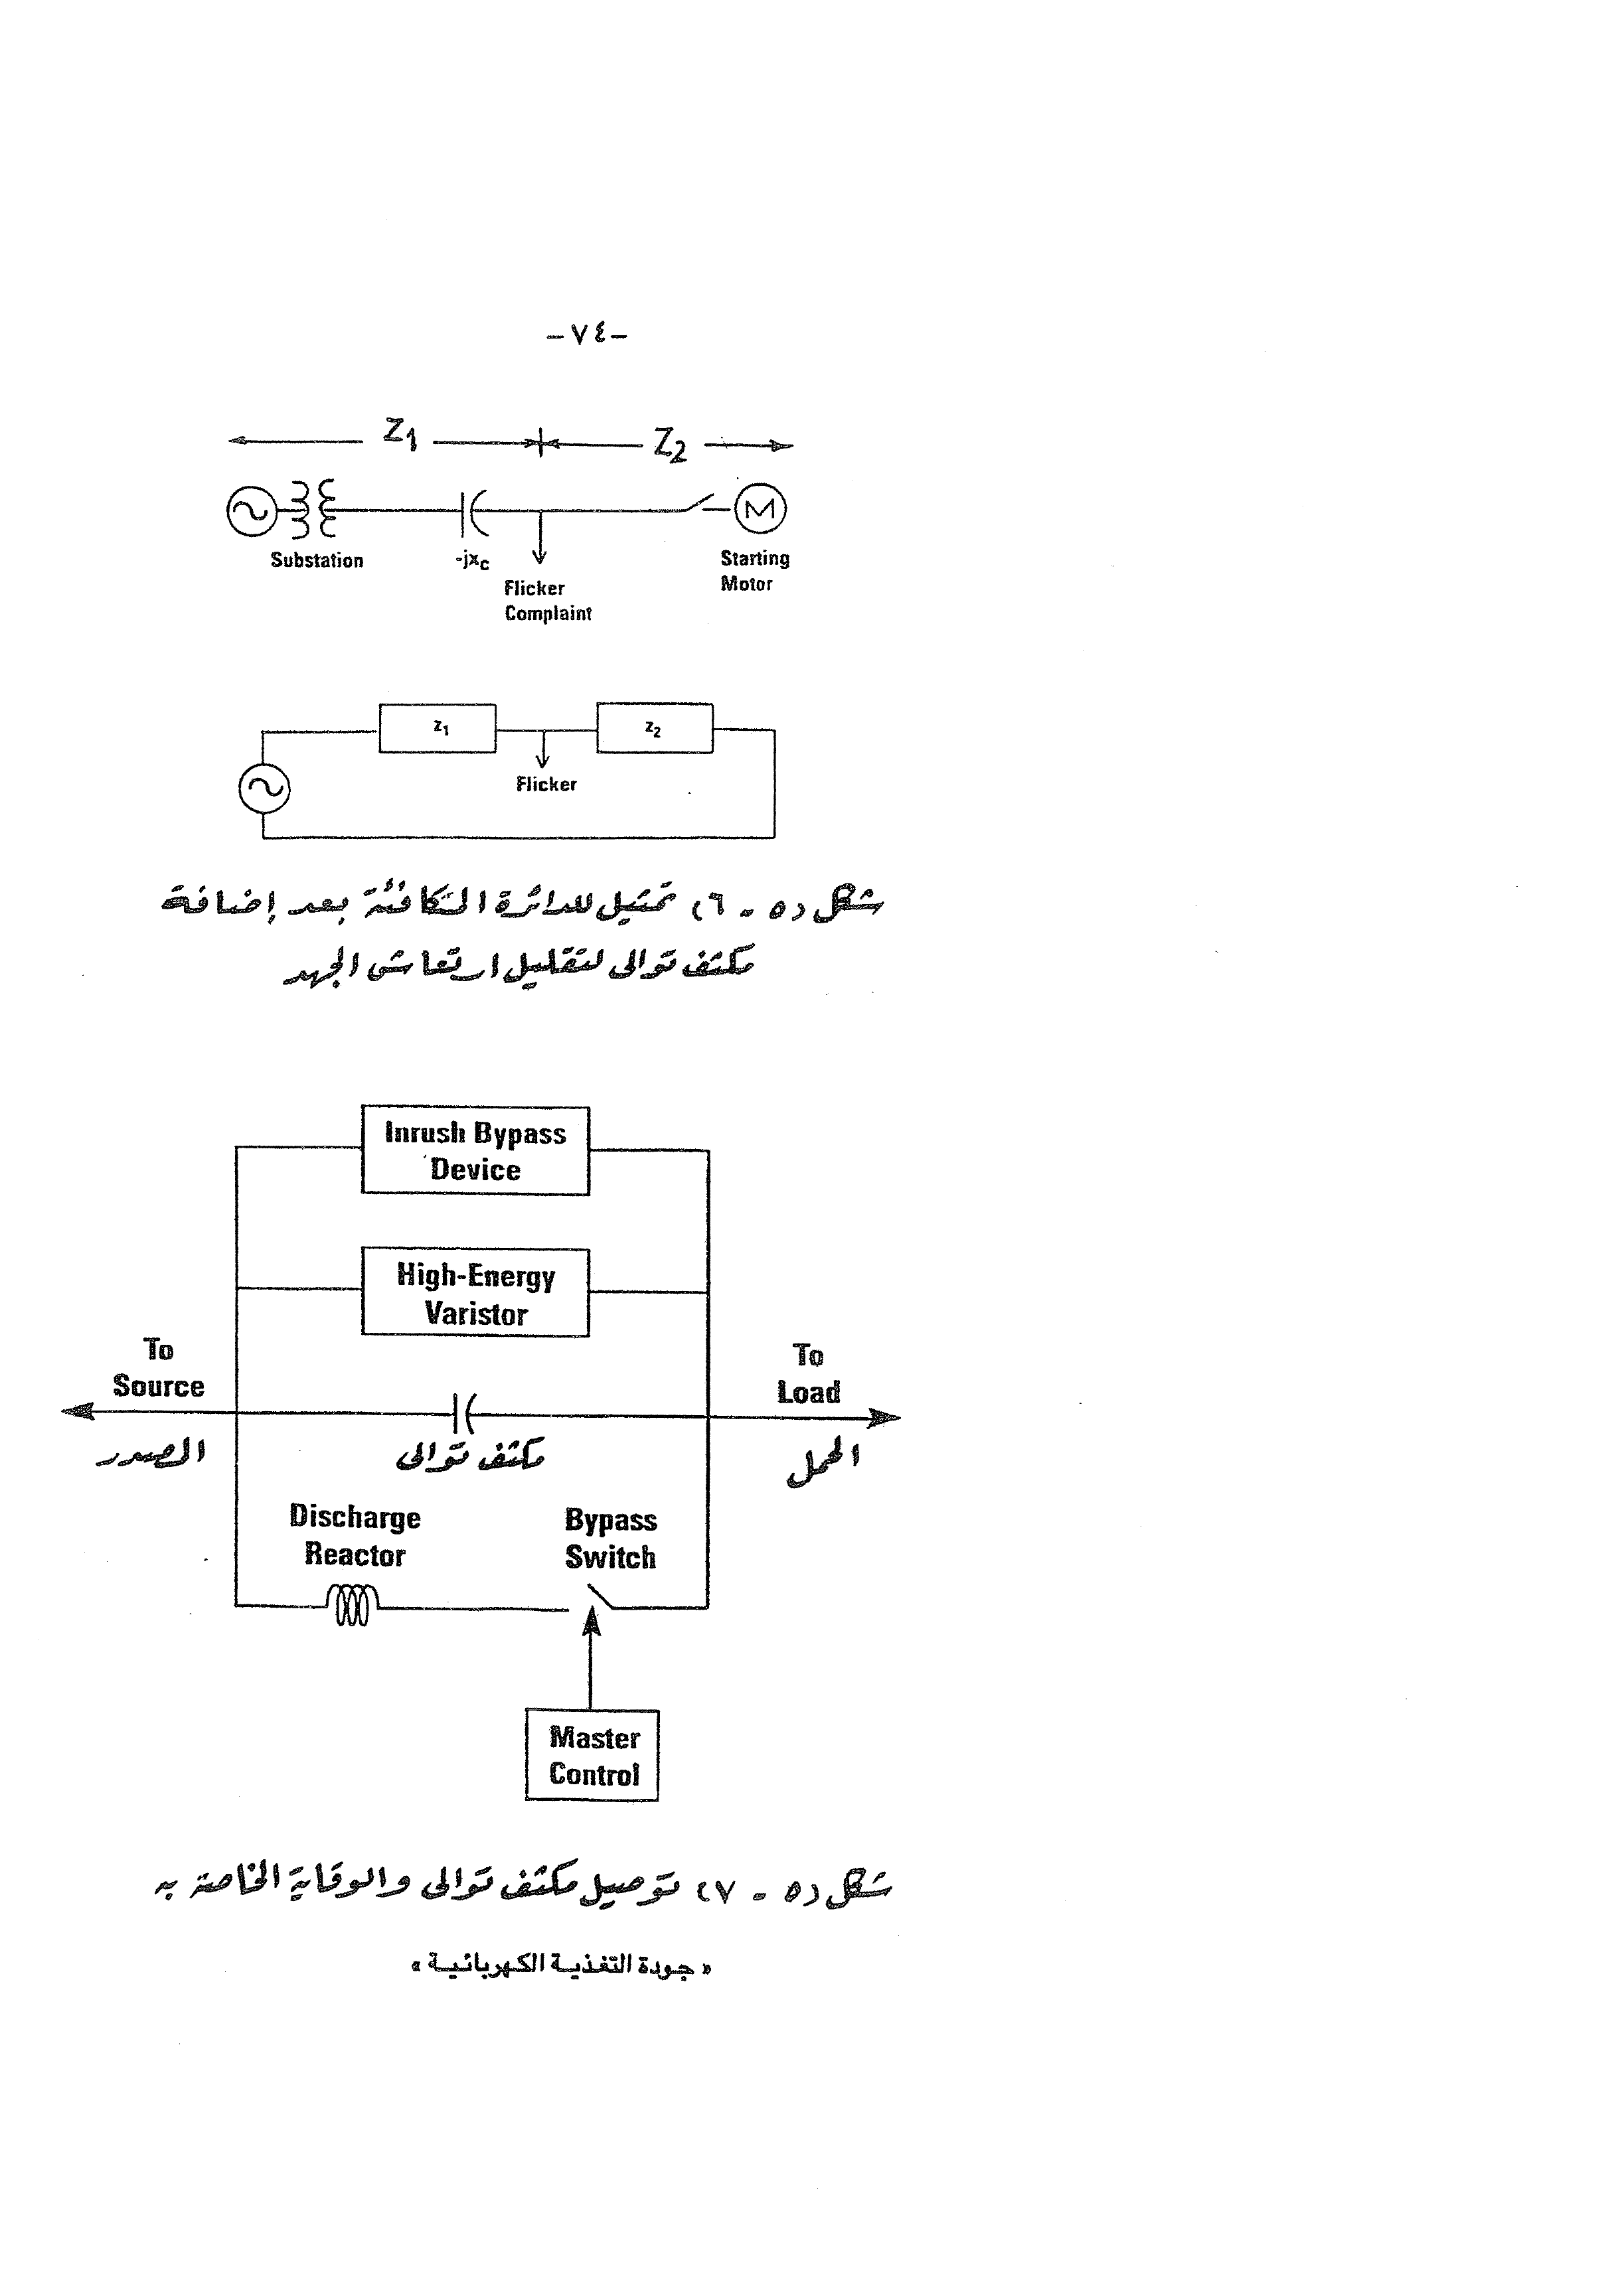 -٧٤-
Z1
Z2
Substation
-jxc
Flicker
Complaint
Starting
Motor
M
z1
z2
Flicker
شكل (٥ - ٦) تمثيل للدائرة المكافئة بعد إضافة
مكثف توالى لتقليل ارتعاش الجهد
Inrush Bypass
Device
High-Energy
Varistor
To
Source
المصدر
مكثف توالى
To
Load
الحمل
Discharge
Reactor
Bypass
Switch
Master
Control
شكل (٥ - ٧) توصيل مكثف توالى والوقاية الخاصة به
«جودة التغذية الكهربائية»